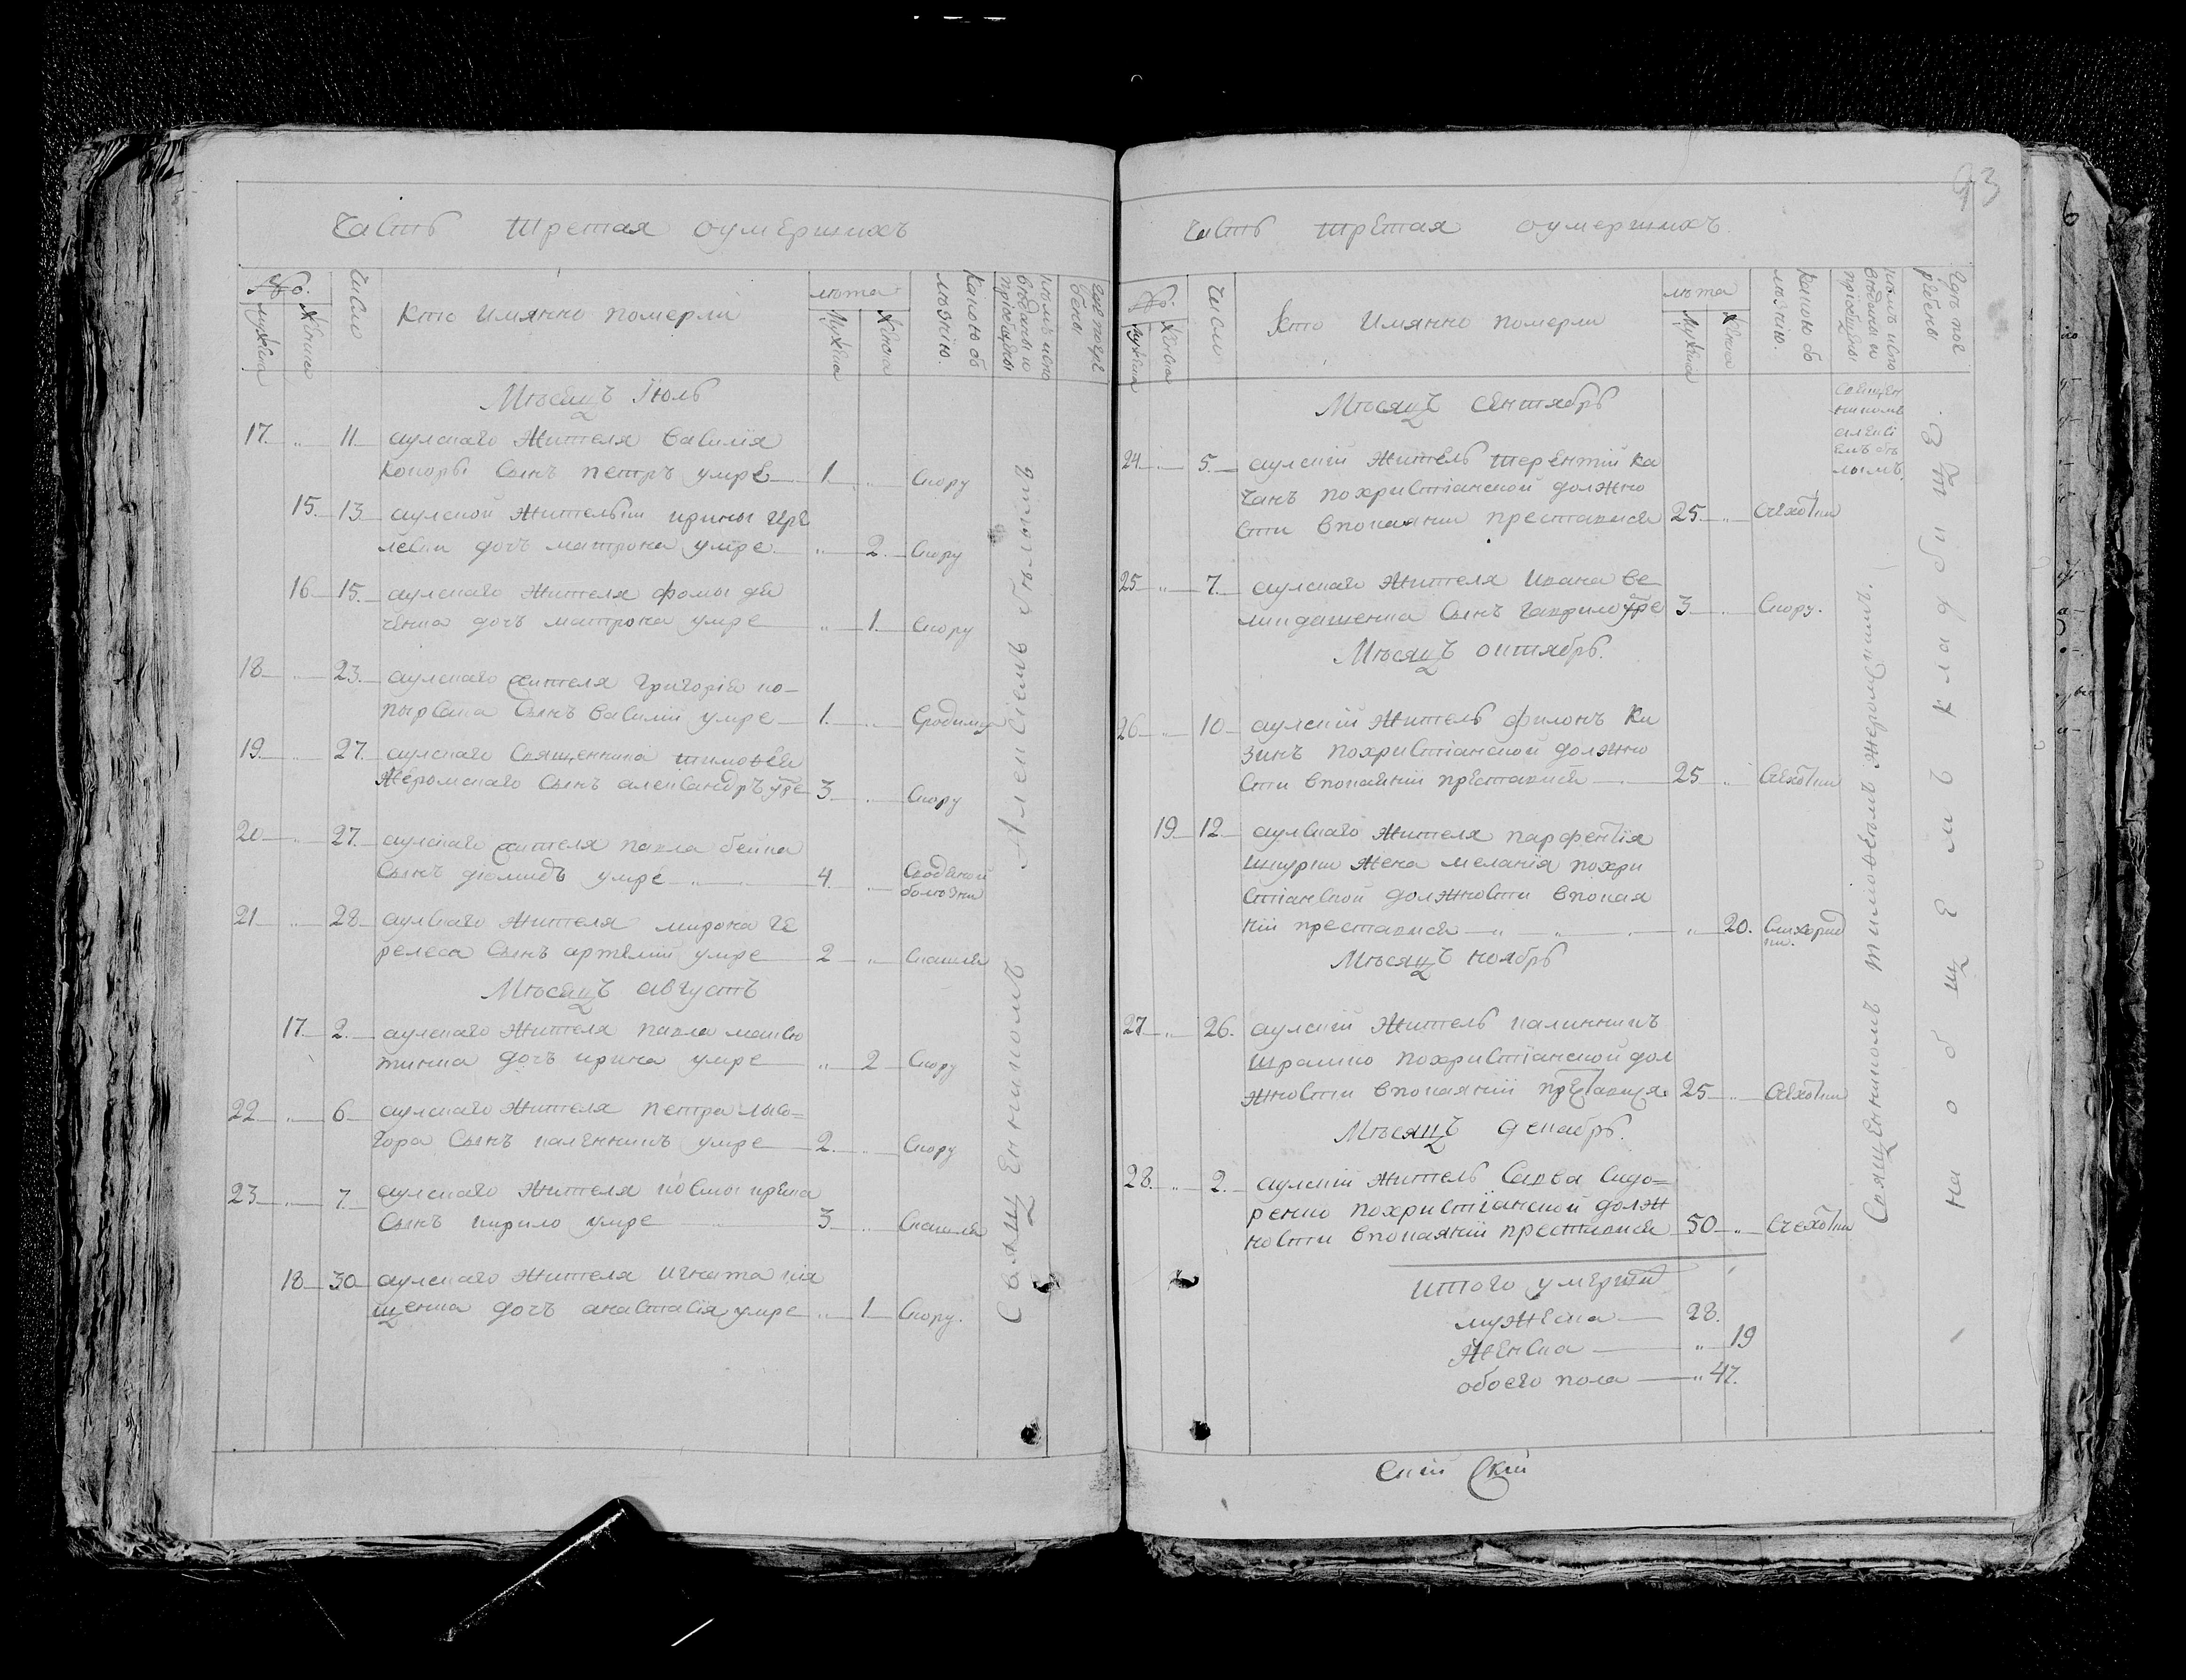 Часть третая оумершихъ
№.
мужеска
женска
число
кто имянно померли
лѣта
мужеска
женска
какою бо
лѣзнію.
кѣмъ испо
вѣдованы и
пріобщены
гдѣ погре
бены
Мѣсяцъ Июль
17. " 11. аулскаго жителя василія
сынъ петръ умре 1. " Скору
15. 13. аулской жителки ирины
дочъ матрона умре " 2. Скору
16 15. аулскаго жителя фомы дя
ченка дочъ матрона умре " 1. Скору
18 " 23. аулскаго жителя григорія ко-
сынъ василий умре 1. " Сродимца
19. " 27. аулскаго Священника тимофея
Жеромскаго сынъ александръ умре 3 " Скору
20 " 27. аулскаго жителя павла бейка
сынъ діомидъ умре 4. " Сводяной болѣзни
21 " 28 аулскаго жителя мирона че
релеса сынъ артемій умре 2 " Скашля
Мѣсяцъ августъ
17. 2. аулскаго жителя павла
дочъ ирина умре " 2 Скору
22 " 6 аулскаго жителя петра лысо=
гора сынъ калинникъ умре 2. " Скору
23 " 7. аулскаго жителя
сынъ кирило умре 3 " Скашля
18 30 аулскаго жителя игната кія
щенка дочъ анастасія умре " 1 Скору.
Священникомъ Алексіемъ бѣлымъ
93
Часть третая оумершихъ
№.
мужеска
женска
число
кто имянно померли
лѣта
мужеска
женска
какою бо
лѣзнію.
кѣмъ испо
вѣдованы и
пріобщены
гдѣ пог
ребены
Мѣсяцъ сентябрь
24 " 5. аулскій житель терентій ка
чанъ похристіанской должно
сти впокаянии преставися 25. " Счехотки
25 " 7. аулскаго жителя ивана ве
сынъ гаврило умре 3 " Скору.
Мѣсяцъ октябрь.
26 " 10 аулскій житель филонъ Ки
зинъ похристіанской должно
сти впокаяніи преставися 25 " Счехотки
19 12 аулскаго жителя парфентія
шкурки жена меланія похри
стіанской должности впокая
ніи преставися " 20. Слихорад
ки.
Мѣсяцъ ноябрь
27 " 26. аулскій житель калинникъ
шрамко похристіанской дол
жности впокаяніи преставися 25 " Счехотки
Мѣсяцъ декабрь.
28. " 2. аулскій житель Савва сидо=
ренко похристіанской долж
ности впокаяніи преставися 50 " Счехотки
Священ
никомъ
алексі
емъ бѣ
лымъ
Священникомъ тимофеемъ жеромскимъ.
на общемъ кладбищѣ.
итого умерши
мужеска 28.
женска " 19
обоего пола " 47.